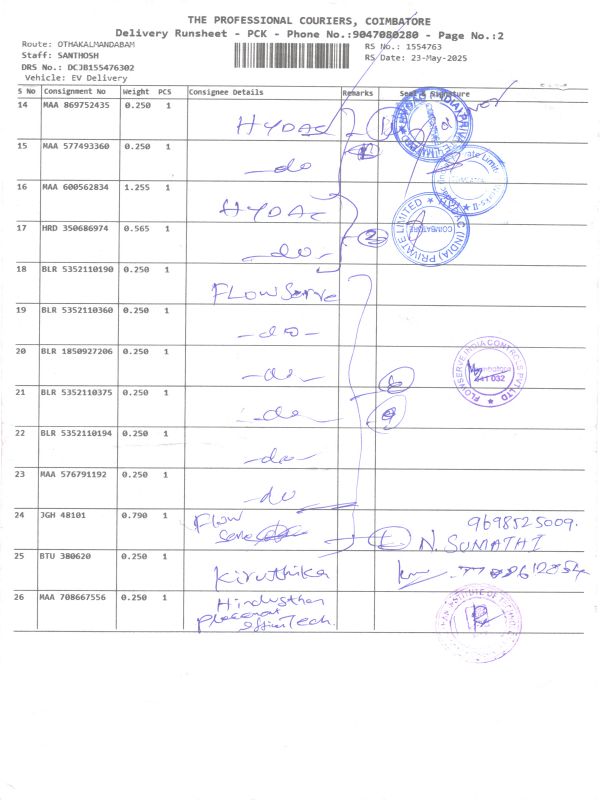 THE PROFESSIONAL COURIERS, COIMBATORE
Delivery Runsheet - PCK - Phone No.:9047080280 - Page No.:2
Route: OTHAKALMANDABAM
RS No.: 1554763
Staff: SANTHOSH
RS Date: 23-May-2025
DRS No.: DCJB155476302
Vehicle: EV Delivery
S No Consignment No Weight PCS Consignee Details Remarks Seal & Signature
14 MAA 869752435 0.250 1 HYDAC
15 MAA 577493360 0.250 1 -do
16 MAA 600562834 1.255 1 HYDAC
17 HRD 350686974 0.565 1 -do- 2
18 BLR 5352110190 0.250 1 FLOWServe
19 BLR 5352110360 0.250 1 -do-
20 BLR 1850927206 0.250 1 -do-
21 BLR 5352110375 0.250 1 -do-
22 BLR 5352110194 0.250 1 -do-
23 MAA 576791192 0.250 1 -do
24 JGH 48101 0.790 1 Flow 9698525009.
Serve N. SUMATHI
25 BTU 380620 0.250 1 Kiruthika
26 MAA 708667556 0.250 1 Hindusthan
Placement
office Tech.
HYDAC (INDIA) PRIVATE LIMITED
COIMBATORE
FLOWSERVE INDIA CONTROLS PVT LTD
641 032